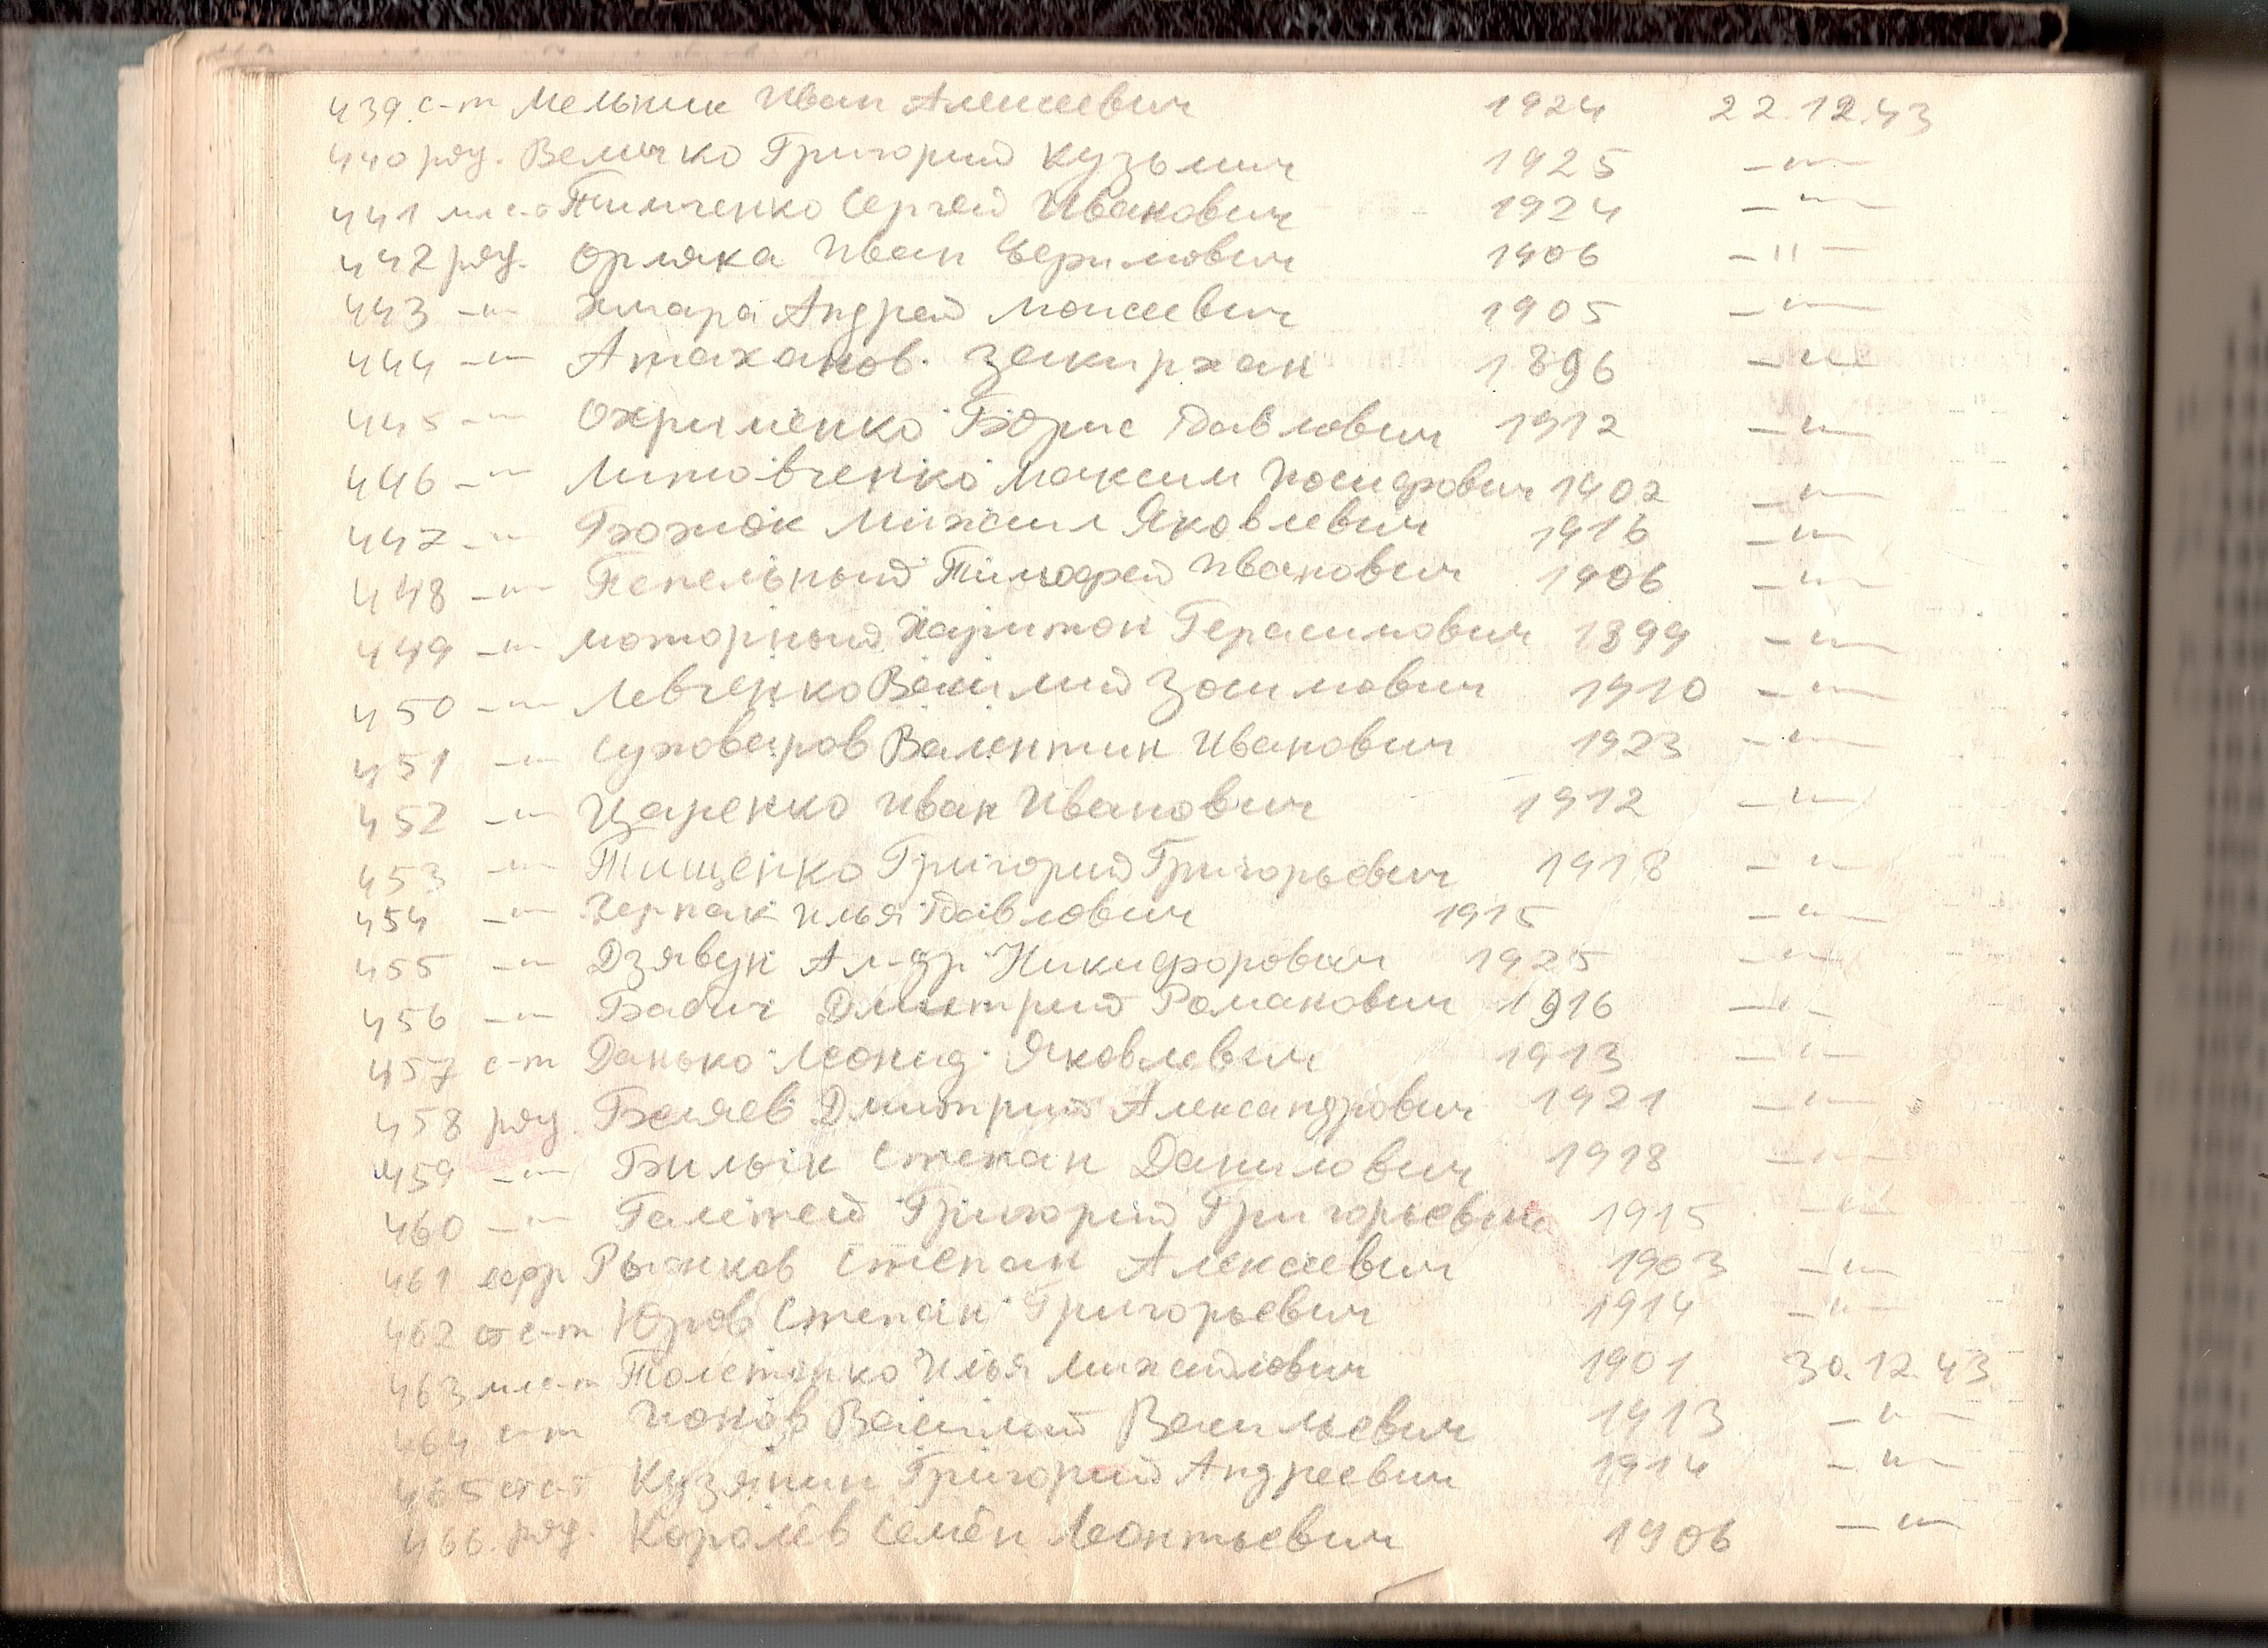 439. с-т Мельник Иван Алексеевич 1924 22.12.43
440 ряд. Величко Григорий Кузьмич 1925 —"—
441 мл с-т Тимченко Сергей Иванович 1924 —"—
442 ряд. Орляка Иван 1906 —"—
443 —"— Хмара Андрей Моисеевич 1905 —"—
444 —"— Атаханов. Закирхан 1896 —"—
445 —"— Охрименко Борис Павлович 1912 —"—
446 —"— Литовченко Максим Иосифович 1902 —"—
447 —"— Божок Михаил Яковлевич 1916 —"—
448 —"— Пепельный Тимофей Иванович 1906 —"—
449 —"— Моторный Харитон Герасимович 1899 —"—
450 —"— Левченко Василий Зосимович 1910 —"—
451 —"— Суховаров Валентин Иванович 1923 —"—
452 —"— Царенко Иван Иванович 1912 —"—
453 —"— Тищенко Григорий Григорьевич 1918 —"—
454 —"— Черпак Илья Павлович 1915 —"—
455 —"— Дзявук Ал-др Никифорович 1925 —"—
456 —"— Бабич Дмитрий Романович 1916 —"—
457 с-т Данько Леонид Яковлевич 1913 —"—
458 ряд. Беляев Дмитрий Александрович 1921 —"—
459 —"— Билык Степан Данилович 1918 —"—
460 —"— Григорий Григорьевич 1915 —"—
461 ефр Рыжков Степан Алексеевич 1903 —"—
462 ст с-т Юров Степан Григорьевич 1914 —"—
463 мл с-т Толстенко Илья Михайлович 1901 30.12.43
464 с-т Ионов Василий Васильевич 1913 —"—
465 ст с-т Кузякин Григорий Андреевич 1914 —"—
466. ряд. Королёв Семён Леонтьевич 1906 —"—